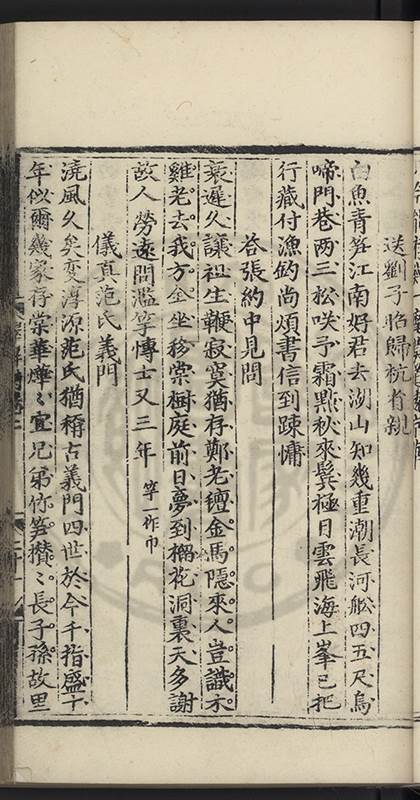 送劉子昭歸杭省親
白魚青笋江南好君去湖山知幾重潮長河船四五尺鳥
啼門巷兩三松咲予霜㸃秋來鬂極目雲飛海上峯已把
行藏付漁釣尚煩書信到踈慵
答張約中見問
衰遲久讓祖生鞭寂寞猶存鄭老氊金馬隱來人豈識木
雞老去我方全坐移棠樹庭前日夢到榴花洞裏天多謝
故人勞遠問濫竽博士又三年 竽一作巾
儀真范氏義門
澆風久矣変淳源范氏猶稱古義門四世於今千指盛十
年似爾幾家存棠華燁〻宜兄弟竹笋攢〻長子孫故里